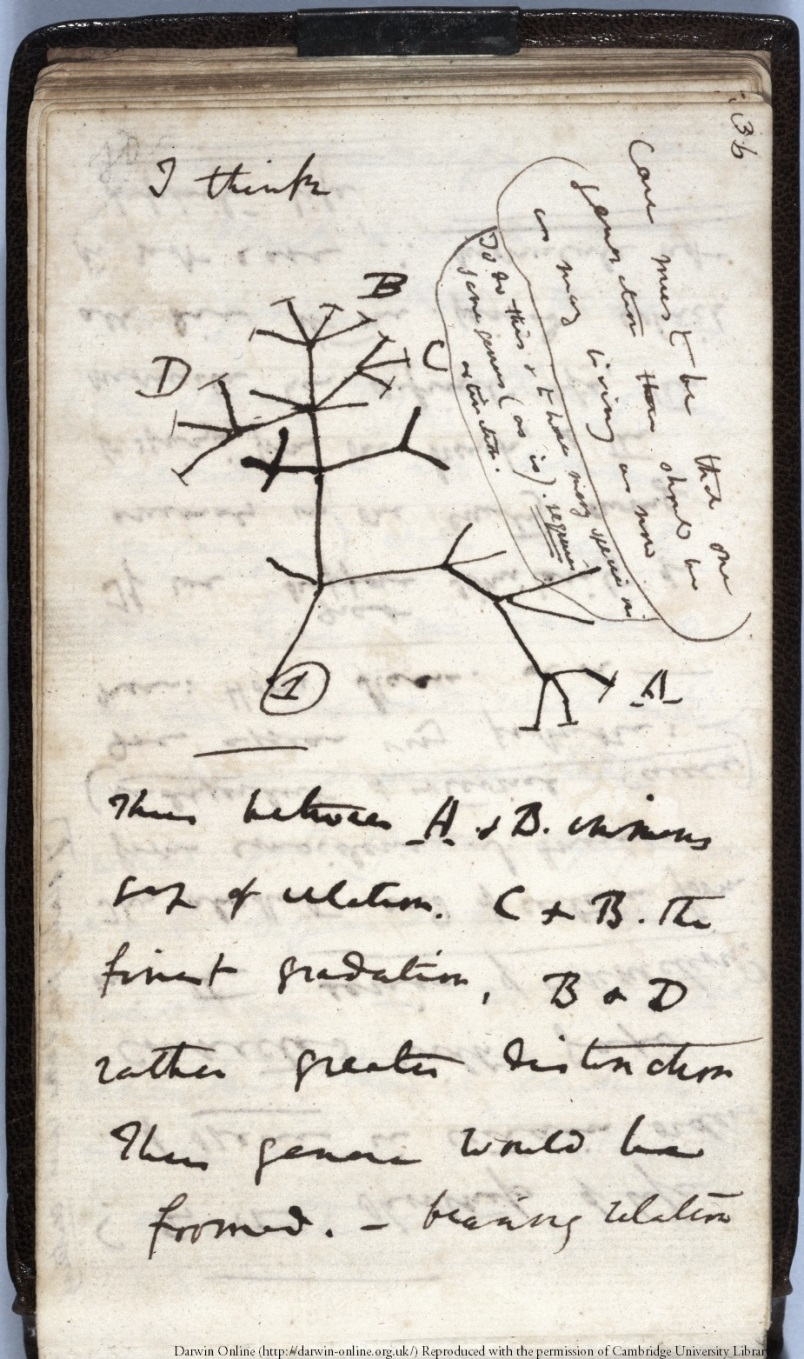 36
I think
Case must be that one
generation then should be
as many living as now
To do this & to have many species in
same genus (as is). requires
extinction.
B
C
D
A
1
Thus between A & B. immens
gap of relation. C & B. The
finest gradation, B & D
rather greater distinction
Thus genera would be
fromed. — bearing relation
Darwin Online (http://darwin-online.org.uk/) Reproduced with the permission of Cambridge University Librar